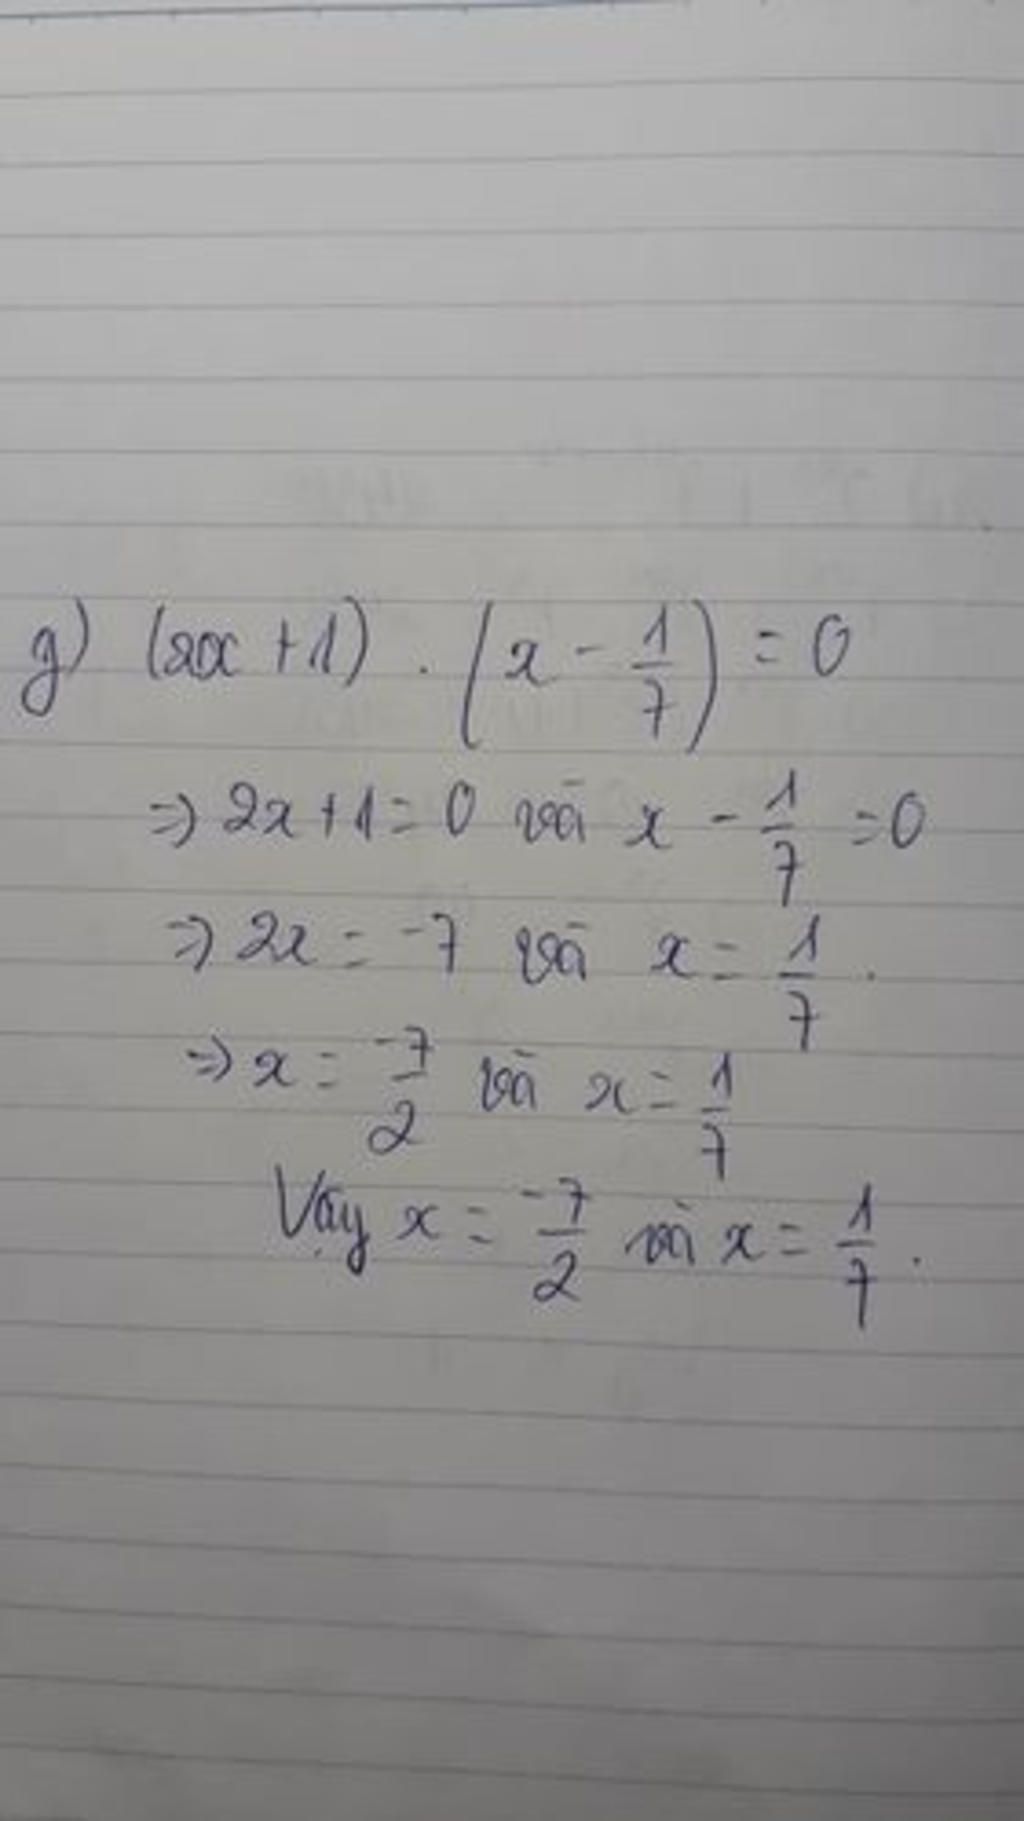 g) (2x + 1) . (x - 1/7) = 0
=> 2x + 1 = 0 và x - 1/7 = 0
=> 2x = -7 và x = 1/7 .
=> x = -7/2 và x = 1/7
Vậy x = -7/2 và x = 1/7 .